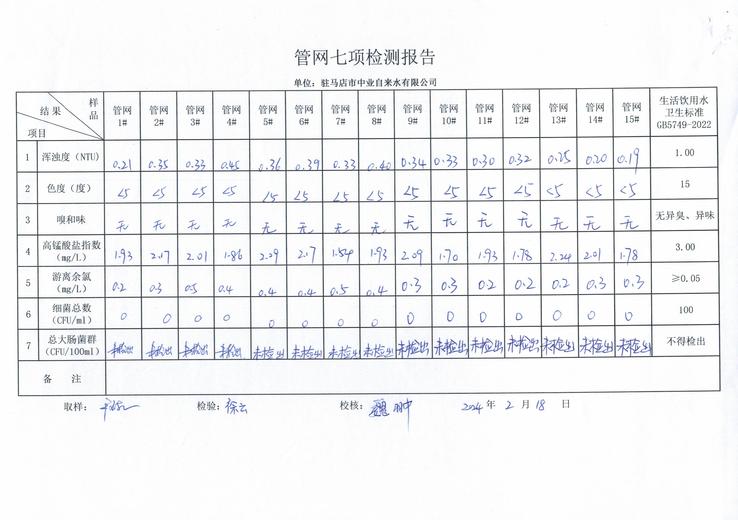 管网七项检测报告
单位：驻马店市中业自来水有限公司
结果 样品 项目 管网1# 管网2# 管网3# 管网4# 管网5# 管网6# 管网7# 管网8# 管网9# 管网10# 管网11# 管网12# 管网13# 管网14# 管网15# 生活饮用水卫生标准GB5749-2022
1 浑浊度（NTU） 0.21 0.35 0.33 0.45 0.36 0.39 0.33 0.40 0.34 0.33 0.30 0.32 0.25 0.20 0.19 1.00
2 色度（度） <5 <5 <5 <5 <5 <5 <5 <5 <5 <5 <5 <5 <5 <5 <5 15
3 嗅和味 无 无 无 无 无 无 无 无 无 无 无 无 无 无 无 无异臭、异味
4 高锰酸盐指数（mg/L） 1.93 2.17 2.01 1.86 2.09 2.17 1.54 1.93 2.09 1.70 1.93 1.78 2.24 2.01 1.78 3.00
5 游离余氯（mg/L） 0.2 0.3 0.5 0.4 0.4 0.4 0.5 0.4 0.3 0.3 0.2 0.2 0.2 0.3 0.3 ≥0.05
6 细菌总数（CFU/ml） 0 0 0 0 0 0 0 0 0 0 0 0 0 0 0 100
7 总大肠菌群（CFU/100ml） 未检出 未检出 未检出 未检出 未检出 未检出 未检出 未检出 未检出 未检出 未检出 未检出 未检出 未检出 未检出 不得检出
备 注
取样： 检验：徐云 校核： 2024 年 2 月 18 日